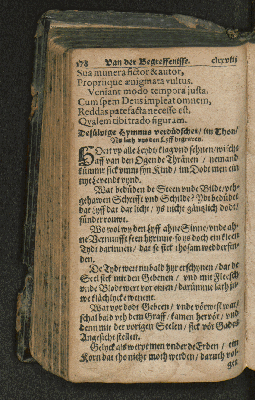 178 Van der Begreffenisse. clxxviij
Sua munera fictor & autor,
Propriique ænigmata vultus.
Veniant modo tempora justa.
Cum spem Deus impleat omnem,
Reddas patefacta necesse est.
Qvalem tibi trado figuram.
Desülvige Hymnus verdüdschet / im Thon /
Nu lath vns den Lyff begraven.
Hört up alle Leidt klag vnd sehnen /
van den Ogen de Thränen / nemand
kümmr sick vmm syn Kind / im Dode men ein
nye Levendt vynd.
Wat bedüden de Steen vnde Bilde /
gehawen Schrifft vnd Schilde?
dat Lyff dat dar licht / ys nicht gäntzlich dodt /
sünder rouwet.
Lyff ahne Sinne / vnde
so ys doch ein kleen
Tydt darinnen / dat se sick thosam wedder
den.
De Tydt wert nu bald hyr erschynen / dar de
Seel sick mit den Gebenen / vnd mit Fleesch
vnde Blode wert vor einen / darümme lath
we kläglicke wenent.
Wat vor dode Geben /
schal bald vth dem Graff / kamen hervör / vnd
denn mit der vorigen Seelen / sick vör Gades
Angesicht stellen.
Gelyck als werpe men vnder de Erden / ein
Korn dat tho nichte moth werden / daruth